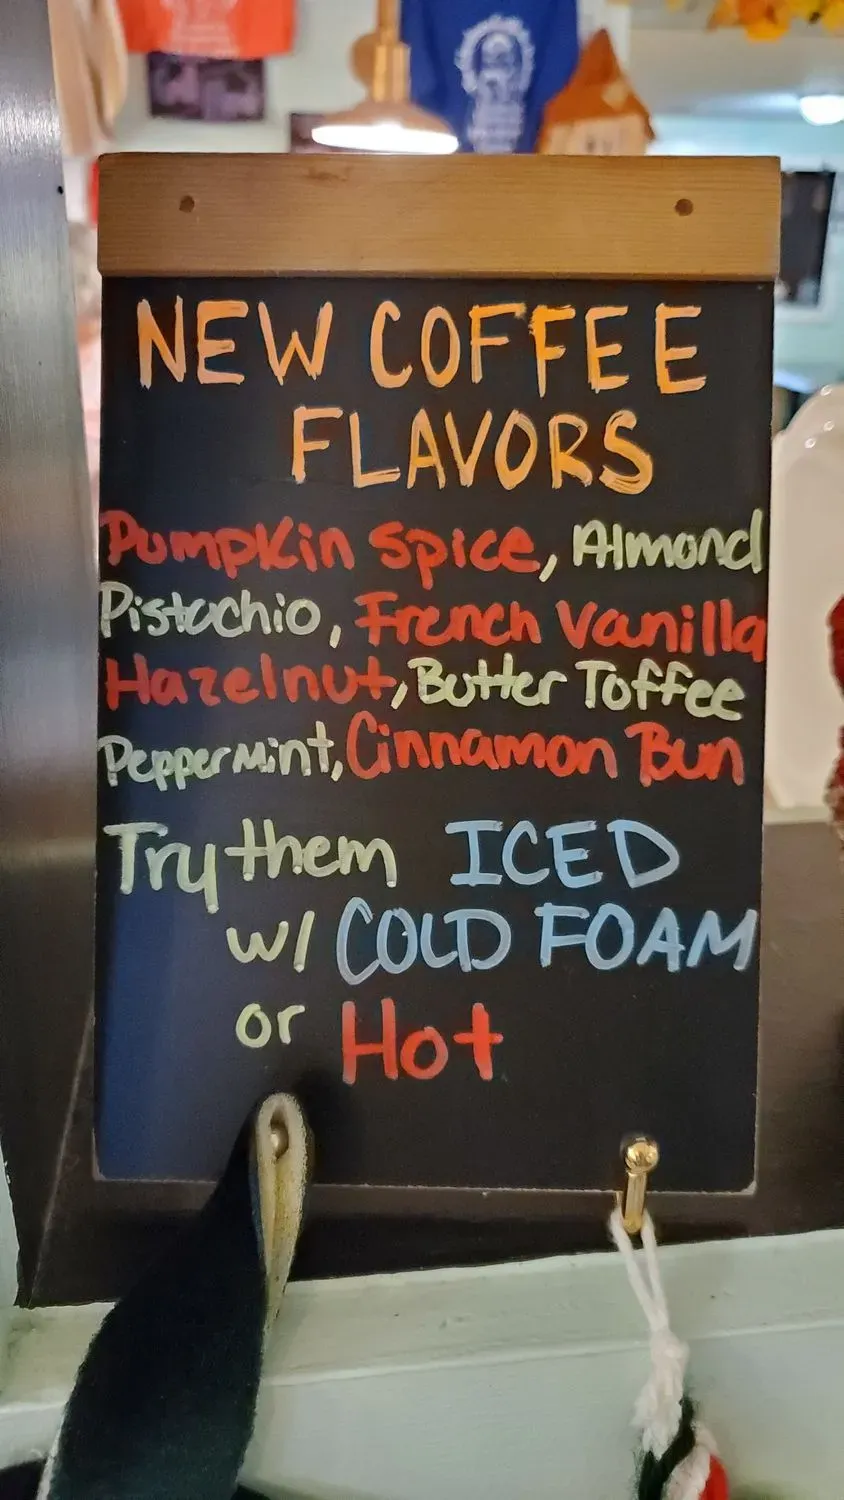 NEW COFFEE
FLAVORS
Pumpkin Spice, Almond
Pistachio, French Vanilla
Hazelnut, Butter Toffee
Peppermint, Cinnamon Bun
Try them ICED
w/ COLD FOAM
or Hot